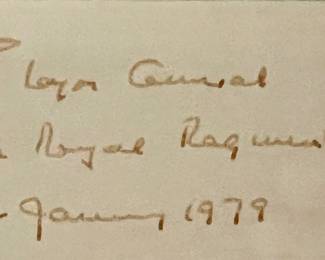 Major General
Royal Regimen
January 1979